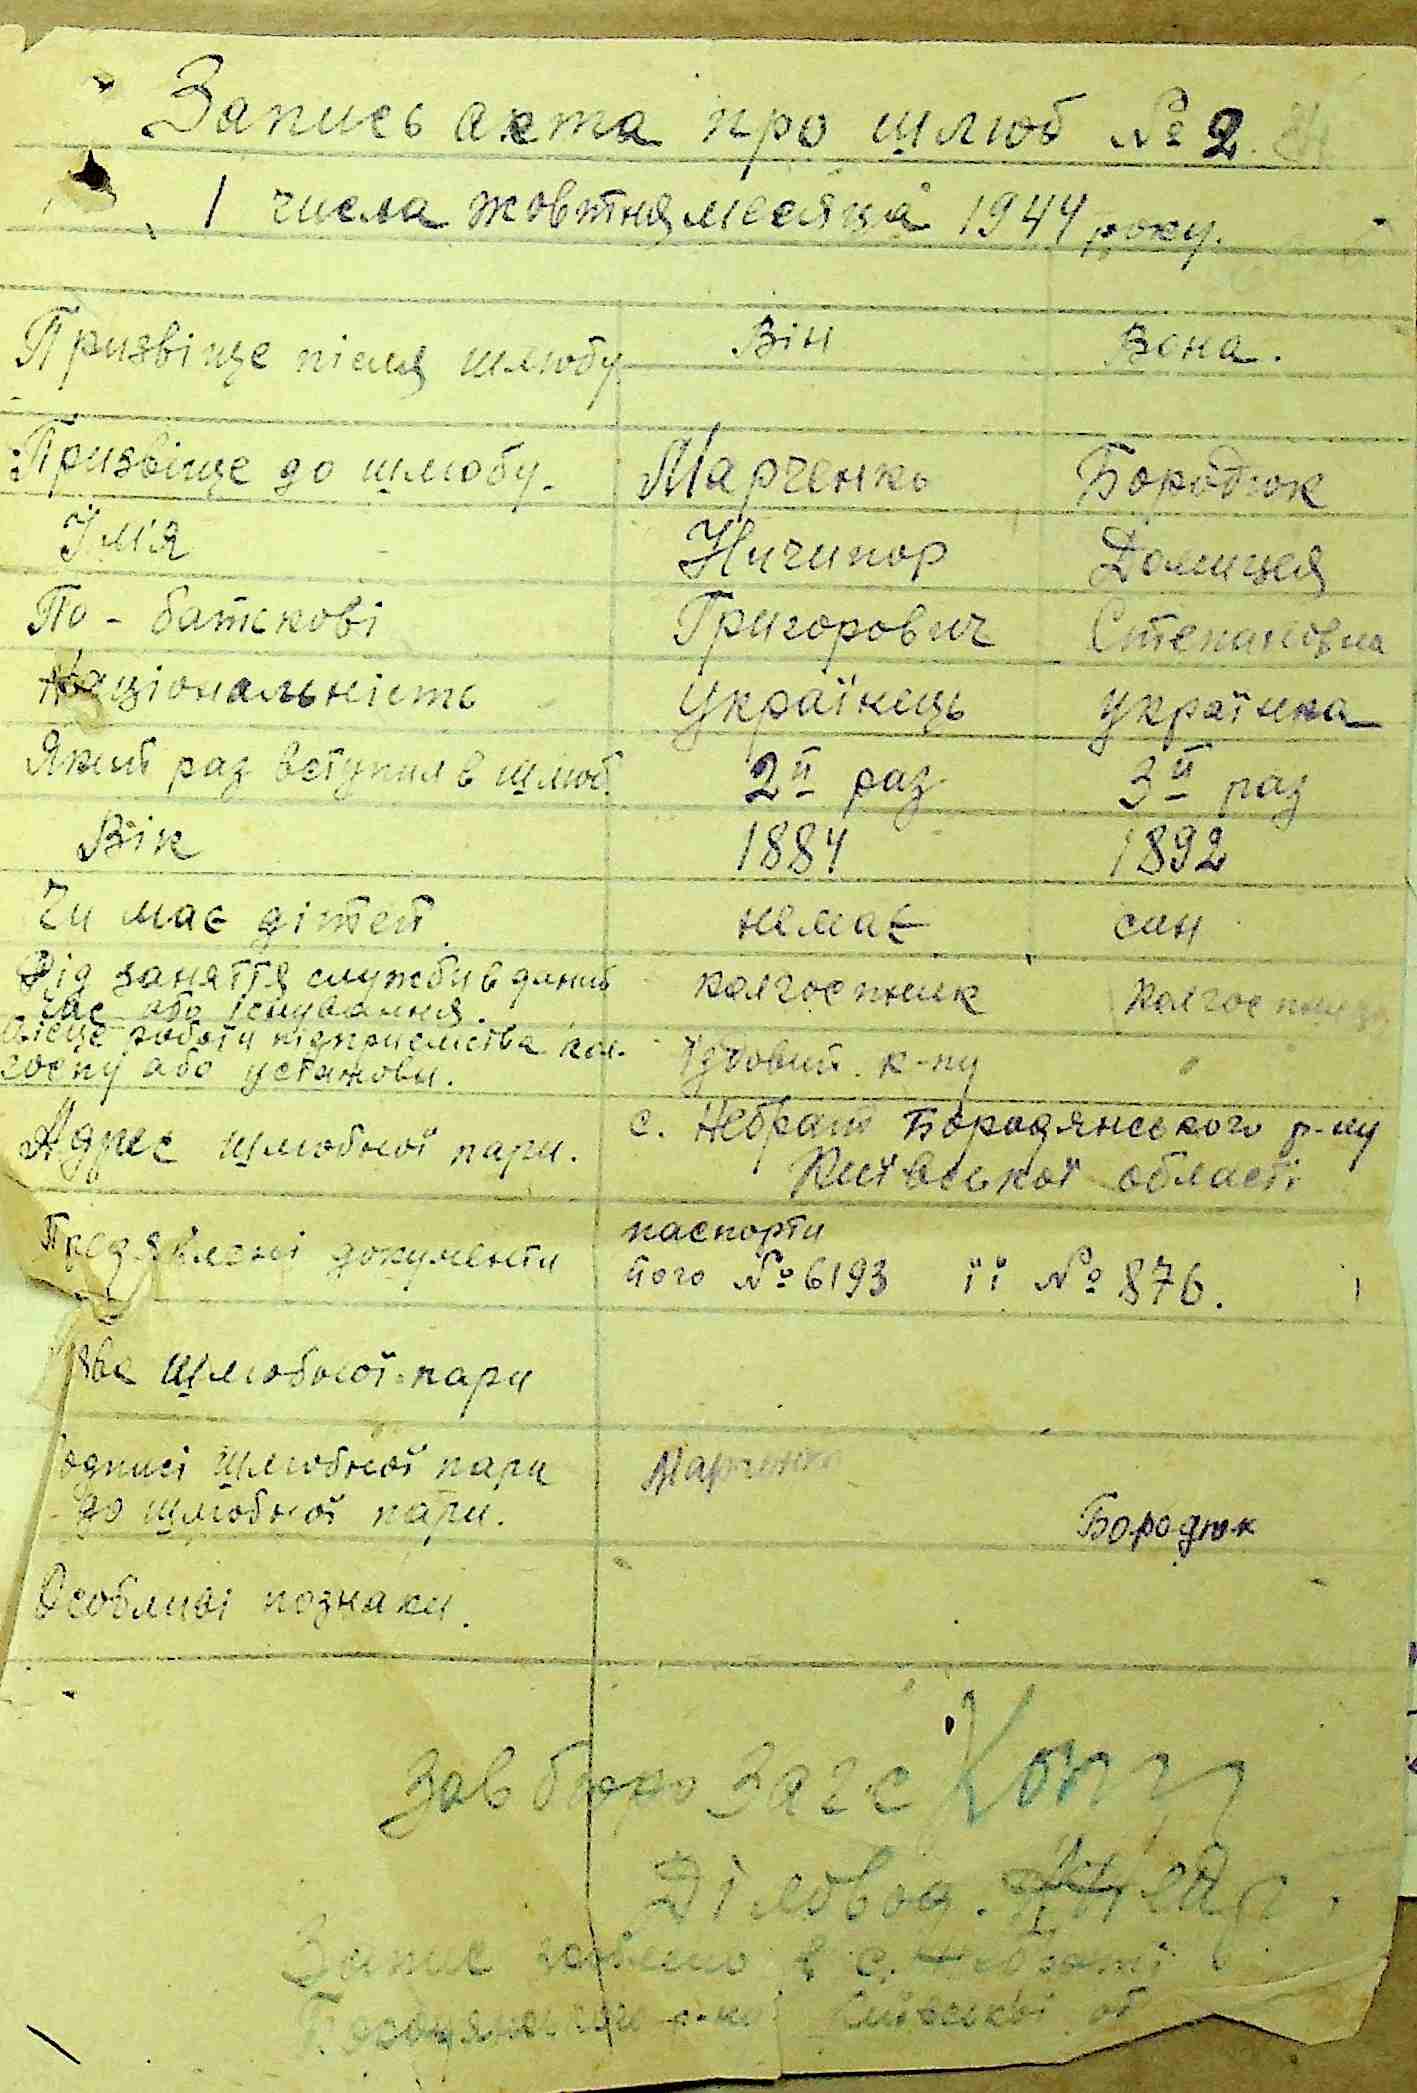 Запись акта про шлюб № 2.
1 числа жовтня месяца 1944 року.
Призвіще після шлюбу Він Вона.
Призвіще до шлюбу. Марченко Бородюк
Імя Ничипор Домицея
По-батькові Григорович Степановна
Національність Українець Українка
Який раз вступил в шлюб. 2й раз 3й раз
Вік 1884 1892
Чи має дітей немає син
Рід заняття служби в даний колгоспник колгоспниця
час або існування.
місце роботи підприємства кол- Їдовий к-пу "
госпу або установи.
Адрес шлюбної пари. с. Небрат Бородянського р-ну
Київської області
Предявлені документи паспорти
його № 6193 її № 876.
шлюбної пари
подписі шлюбної пари Марченко
до шлюбної пари. Бородюк
Особливі познаки.
Зав бюро Загс
Діловод.
Запис зроблено в с. Небраті
Бородянського р-ну Київської об